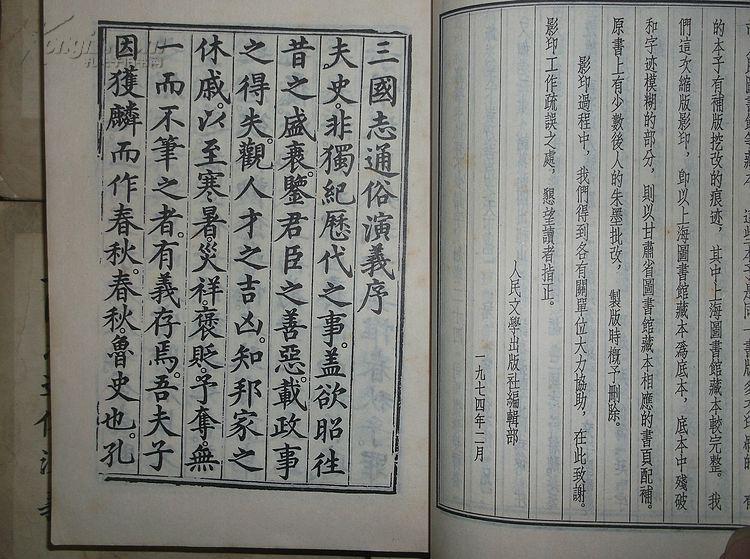 的本子有補版挖改的痕迹，其中上海圖書館藏本較完整。我
們這次縮版影印，卽以上海圖書館藏本爲底本，底本中殘破
和字迹模糊的部分，則以甘肅省圖書館藏本相應的書頁配補。
原書上有少數後人的朱墨批改，製版時概予刪除。
影印過程中，我們得到各有關單位大力協助，在此致謝。
影印工作疏誤之處，懇望讀者指正。
人民文學出版社編輯部
一九七四年二月
三國志通俗演義序
夫史。非獨紀歷代之事。蓋欲昭徃
昔之盛衰。鑒君臣之善惡。載政事
之得失。觀人才之吉凶。知邦家之
休戚。以至寒暑災祥。褒貶。予奪。無
一而不筆之者。有義存焉。吾夫子
因獲麟而作春秋。春秋。魯史也。孔